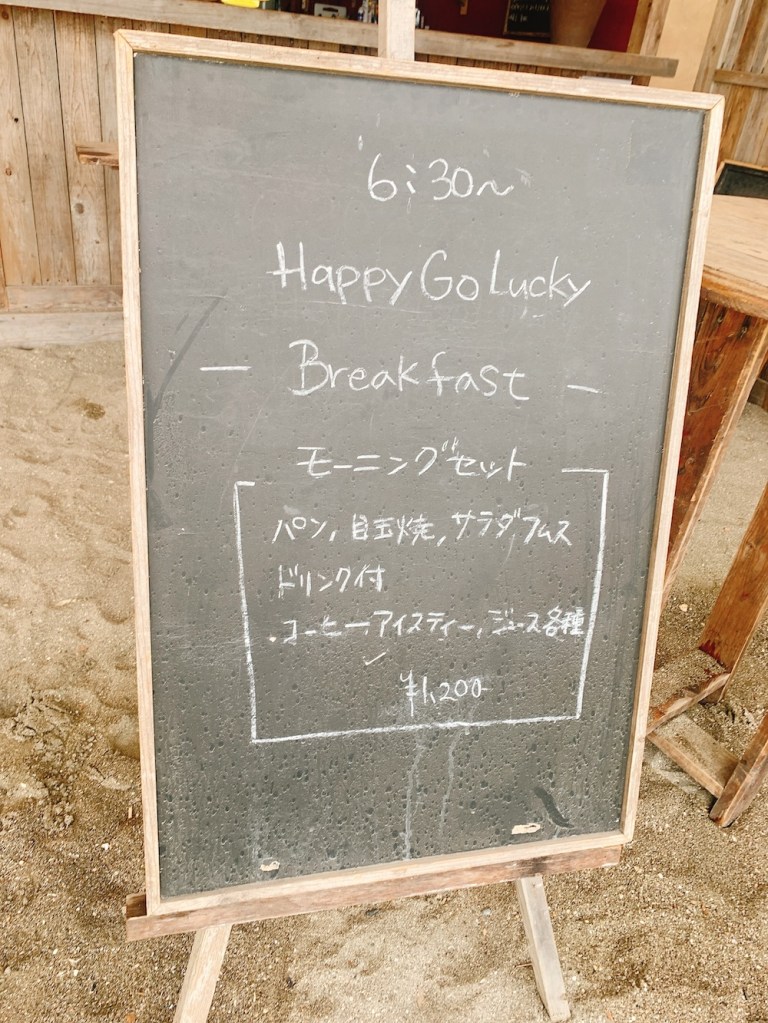 6:30〜
Happy Go Lucky
— Breakfast —
モーニングセット
パン, 目玉焼, サラダ, フムス
ドリンク付
・コーヒー, アイスティー, ジュース各種
¥1,200-